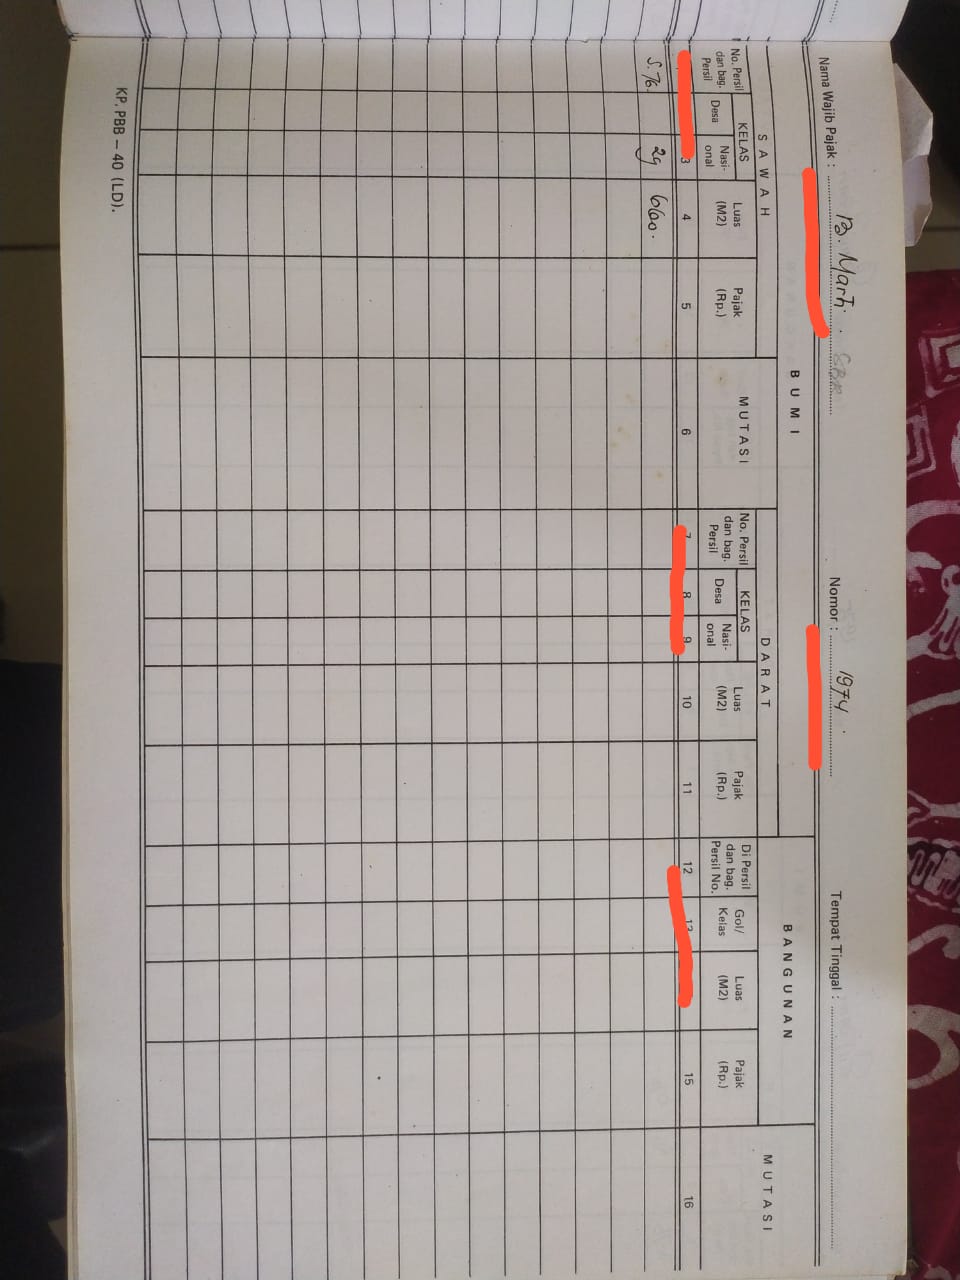 Nama Wajib Pajak : B. Marti. Nomor : 1974. Tempat Tinggal :
B U M I
B A N G U N A N
M U T A S I
S A W A H
M U T A S I
D A R A T
No. Persil dan bag. Persil
KELAS
Desa
Nasi-onal
Luas (M2)
Pajak (Rp.)
No. Persil dan bag. Persil
KELAS
Desa
Nasi-onal
Luas (M2)
Pajak (Rp.)
Di Persil dan bag. Persil No.
Gol/ Kelas
Luas (M2)
Pajak (Rp.)
3 4 5 6 7 8 9 10 11 12 13 15 16
S.76. 29 660.
KP. PBB – 40 (LD).